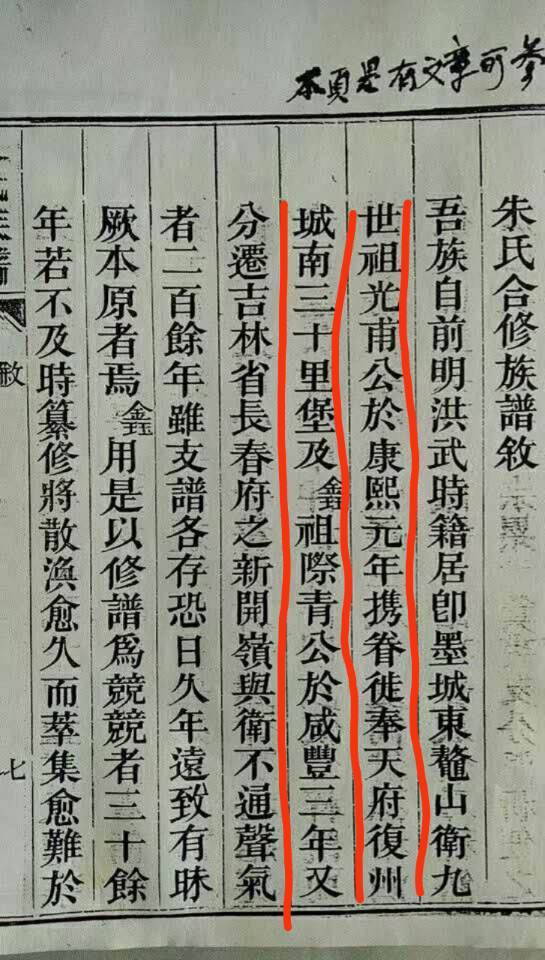 本頁是有文章可参
朱氏合修族譜敘
吾族自前明洪武時籍居卽墨城東鼇山衛九
世祖光甫公於康熙元年携眷徙奉天府復州
城南三十里堡及鈺祖際青公於咸豐三年又
分遷吉林省長春府之新開嶺與衛不通聲氣
者二百餘年雖支譜各存恐日久年遠致有昧
厥本原者焉鈺用是以修譜爲競競者三十餘
年若不及時纂修將散渙愈久而萃集愈難於
敘
七